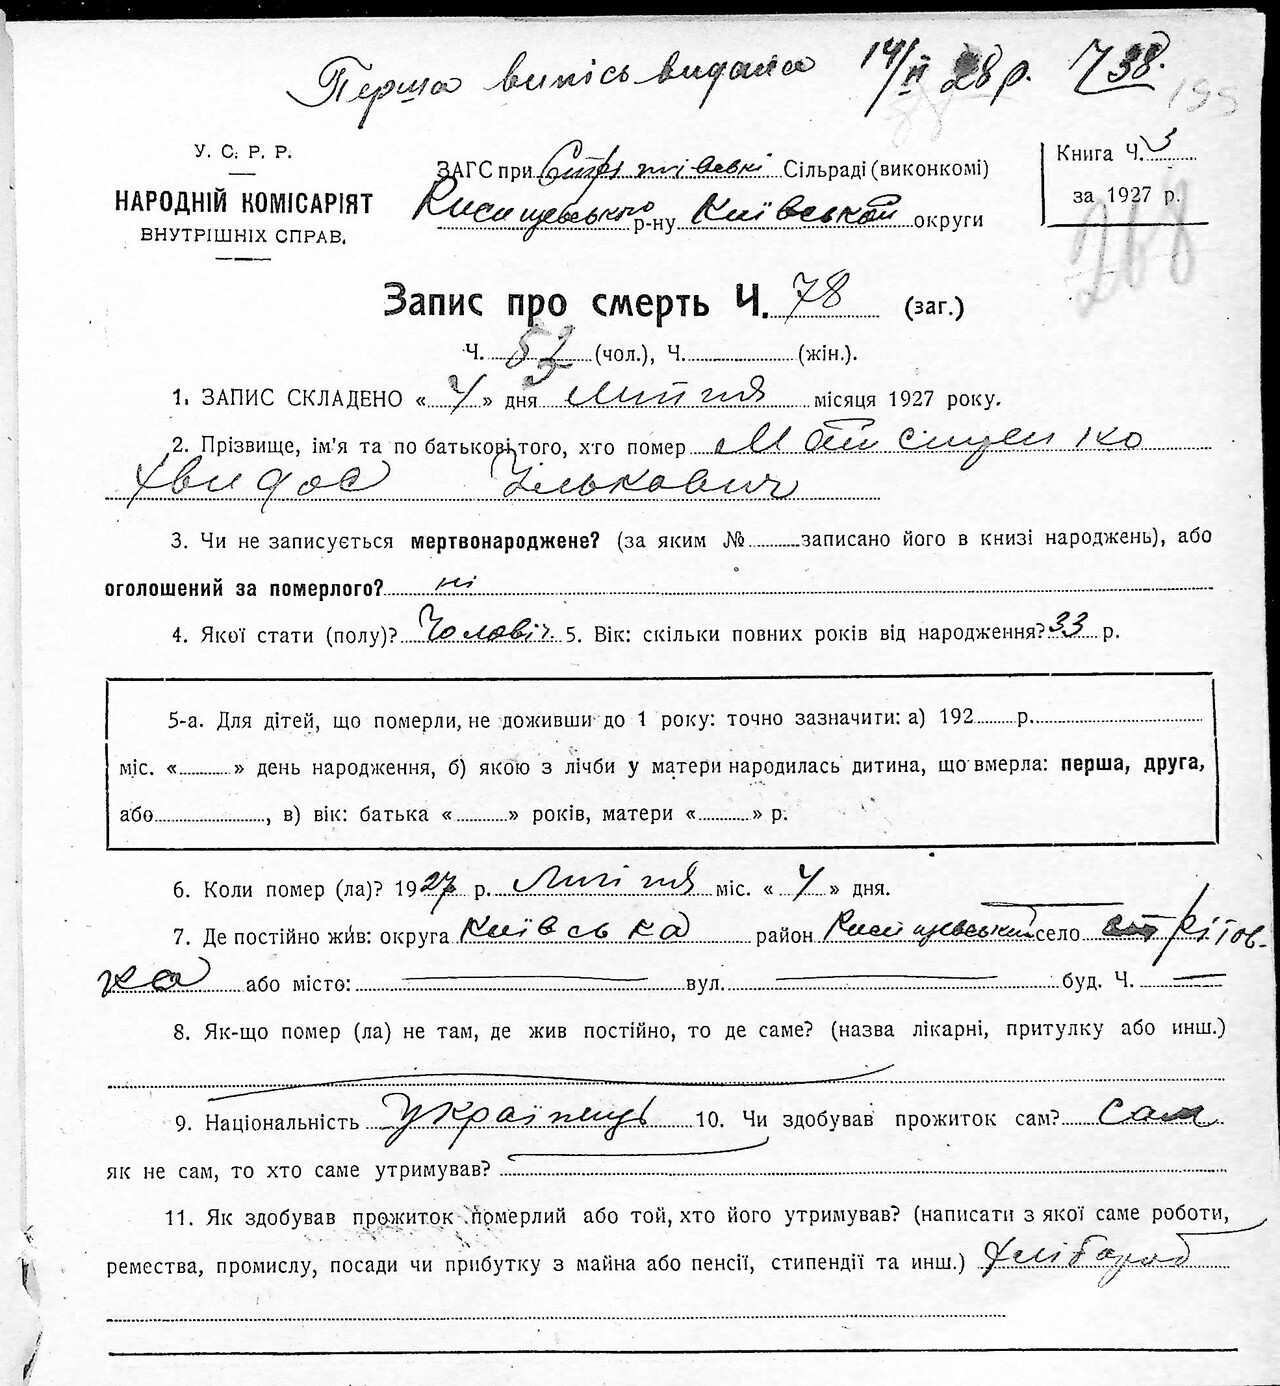 Перша випись видана 14/II 28 р. 738.
199
У. С. Р. Р.
НАРОДНІЙ КОМІСАРІЯТ
ВНУТРІШНІХ СПРАВ.
ЗАГС при Стрітівські Сільраді (виконкомі)
р-ну Київської округи
Книга Ч. 3
за 1927 р.
268
Запис про смерть Ч. 78 (заг.)
Ч. 52 (чол.), Ч. (жін.).
1. ЗАПИС СКЛАДЕНО « 4 » дня Липня місяця 1927 року.
2. Прізвище, ім'я та по батькові того, хто помер
Хведос Ількович
3. Чи не записується мертвонароджене? (за яким № записано його в книзі народжень), або
оголошений за померлого? ні
4. Якої стати (полу)? Чоловіч. 5. Вік: скільки повних років від народження? 33 р.
5-а. Для дітей, що померли, не доживши до 1 року: точно зазначити: а) 192 р.
міс. « » день народження, б) якою з лічби у матери народилась дитина, що вмерла: перша, друга,
або , в) вік: батька « » років, матери « » р.
6. Коли помер (ла)? 1927 р. Липня міс. « 4 » дня.
7. Де постійно жив: округа Київська район село Стрітов-
ка або місто: вул. буд. Ч.
8. Як-що помер (ла) не там, де жив постійно, то де саме? (назва лікарні, притулку або инш.)
9. Національність Українець 10. Чи здобував прожиток сам? Сам
як не сам, то хто саме утримував?
11. Як здобував прожиток померлий або той, хто його утримував? (написати з якої саме роботи,
ремества, промислу, посади чи прибутку з майна або пенсії, стипендії та инш.) Хлібороб